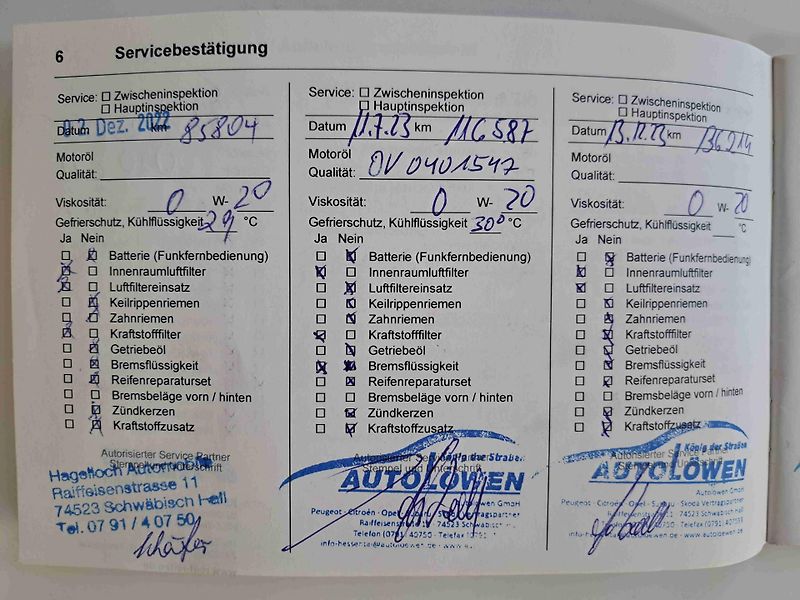 6 Servicebestätigung
Service: Zwischeninspektion
Hauptinspektion
Datum 02 Dez. 2022 km 85804
Motoröl
Qualität:
Viskosität: 0 W- 20
Gefrierschutz, Kühlflüssigkeit 29 °C
Ja Nein
Batterie (Funkfernbedienung)
Innenraumluftfilter
Luftfiltereinsatz
Keilrippenriemen
Zahnriemen
Kraftstofffilter
Getriebeöl
Bremsflüssigkeit
Reifenreparaturset
Bremsbeläge vorn / hinten
Zündkerzen
Kraftstoffzusatz
Autorisierter Service Partner
Stempel und Unterschrift
Hagelloch Automobile
Raiffeisenstrasse 11
74523 Schwäbisch Hall
Tel. 07 91 / 40 7 50
Schäfer
Service: Zwischeninspektion
Hauptinspektion
Datum 11.7.23 km 116587
Motoröl
Qualität: OV0401547
Viskosität: 0 W- 20
Gefrierschutz, Kühlflüssigkeit 30° °C
Ja Nein
Batterie (Funkfernbedienung)
Innenraumluftfilter
Luftfiltereinsatz
Keilrippenriemen
Zahnriemen
Kraftstofffilter
Getriebeöl
Bremsflüssigkeit
Reifenreparaturset
Bremsbeläge vorn / hinten
Zündkerzen
Kraftstoffzusatz
Autorisierter Service Partner
Stempel und Unterschrift
König der Straßen
AUTOLÖWEN
Autolöwen GmbH
Peugeot - Citroën - Opel
Raiffeisenstraße 11 · 74523 Schwäbisch
Telefon (0791) 40750 · Telefax (0791)
Service: Zwischeninspektion
Hauptinspektion
Datum 13.12.23 km 136214
Motoröl
Qualität:
Viskosität: 0 W- 20
Gefrierschutz, Kühlflüssigkeit °C
Ja Nein
Batterie (Funkfernbedienung)
Innenraumluftfilter
Luftfiltereinsatz
Keilrippenriemen
Zahnriemen
Kraftstofffilter
Getriebeöl
Bremsflüssigkeit
Reifenreparaturset
Bremsbeläge vorn / hinten
Zündkerzen
Kraftstoffzusatz
Autorisierter Service Partner
Stempel und Unterschrift
König der Straßen
AUTOLÖWEN
Autolöwen GmbH
Peugeot - Citroën - Opel - Suzuki - Skoda Vertragspartner
74523 Schwäbisch Hall